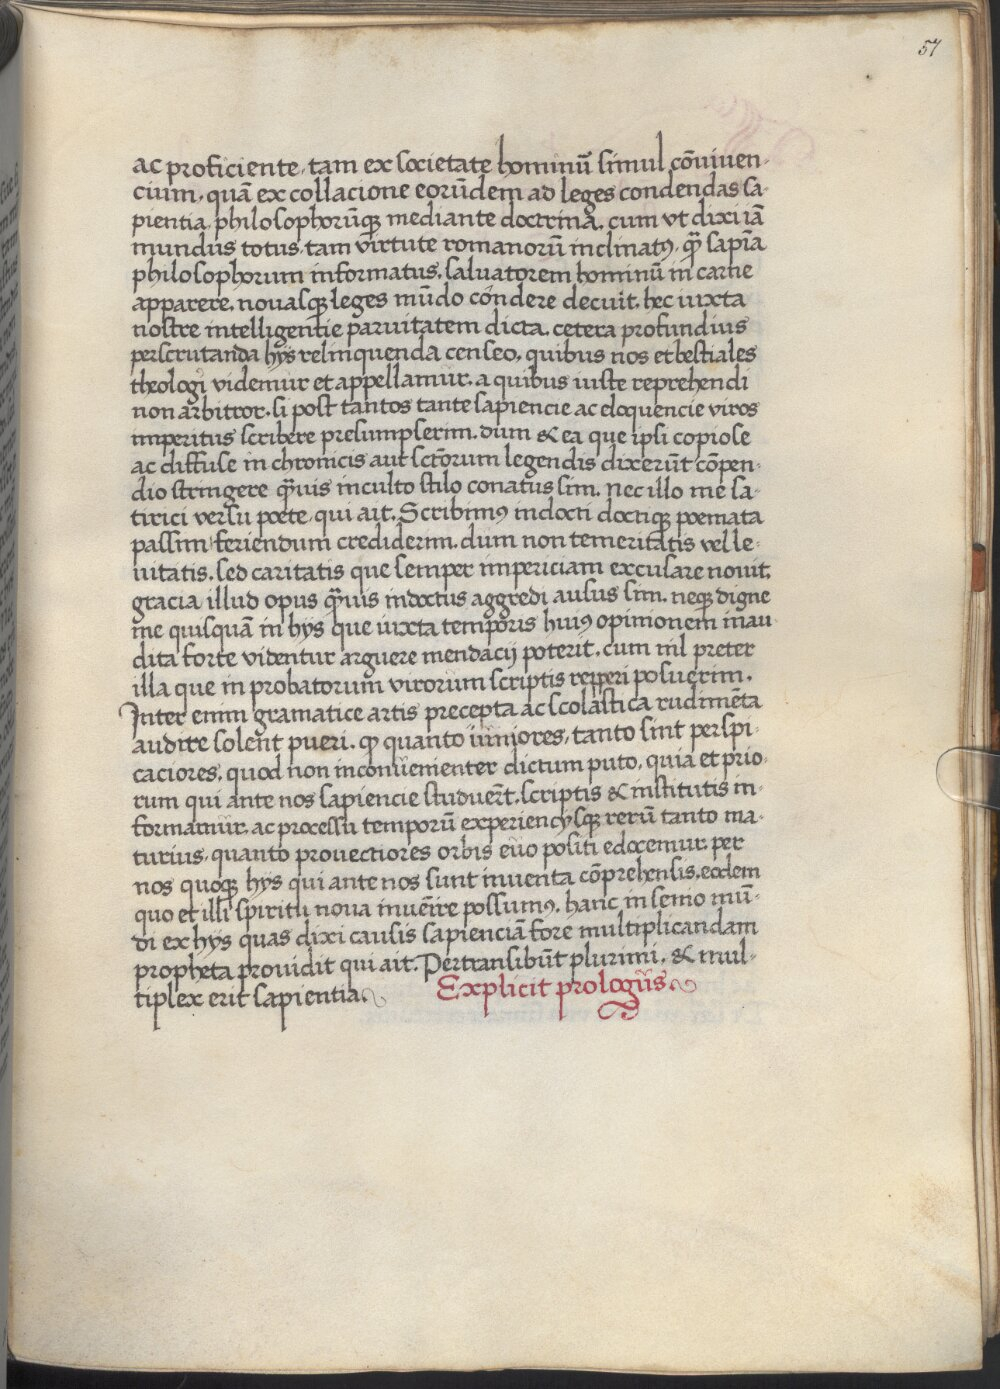 57
ac proficiente, tam ex societate hominū simul cōuiuen-
cium, quā ex collacione eorūdem ad leges condendas sa-
pientia, philosophorūqꝫ mediante doctrina, cum vt dixi iā
mundus totus, tam virtute romanorū inclinatꝰ, qꝫ sapīa
philosophorum informatus, saluatorem hominū in carne
apparere, nouasqꝫ leges mūdo condere decuit. hec iuxta
nostre intelligentie paruitatem dicta, cetera profundius
perscrutanda hys relinquenda censeo, quibus nos et bestiales
theologi videmur et appellamur. a quibus iuste reprehendi
non arbitror, si post tantos tante sapiencie ac eloquencie viros
imperitus scribere presumpserim. dum & ea que ipsi copiose
ac diffuse in chronicis aut sctōrum legendis dixerūt cōpen-
dio stringere qꝫuis inculto stilo conatus sim. nec illo me sa-
tirici versu poete, qui ait. Scribimꝰ indocti doctiqꝫ poemata
passim feriendum crediderim. dum non temeritatis vel le-
uitatis, sed caritatis que semper impericiam excusare nouit,
gracia illud opus qꝫuis indoctus aggredi ausus sim. neqꝫ digne
me quisquā in hys que iuxta temporis huiꝰ opinionem inau
dita forte videntur arguere mendacij poterit, cum nil preter
illa que in probatorum virorum scriptis repperi posuerim.
Inter enim gramatice artis precepta ac scolastica rudimēta
audire solent pueri. qꝫ quanto iuniores, tanto sint perspi-
caciores, quod non inconuenienter dictum puto, quia et prio-
rum qui ante nos sapiencie studuert̄, scriptis & institutis in-
formamur, ac processu temporū experiencysqꝫ rerū tanto ma-
turius, quanto prouectiores orbis euo positi edocemur, per
nos quoqꝫ hys qui ante nos sunt inuenta cōprehensis, eodem
quo et illi spiritu noua inuēire possumꝰ. hanc in senio mū-
di ex hys quas dixi causis sapienciā fore multiplicandam
propheta prouidit qui ait. Pertransibūt plurimi, & mul-
tiplex erit sapientia Explicit prologus